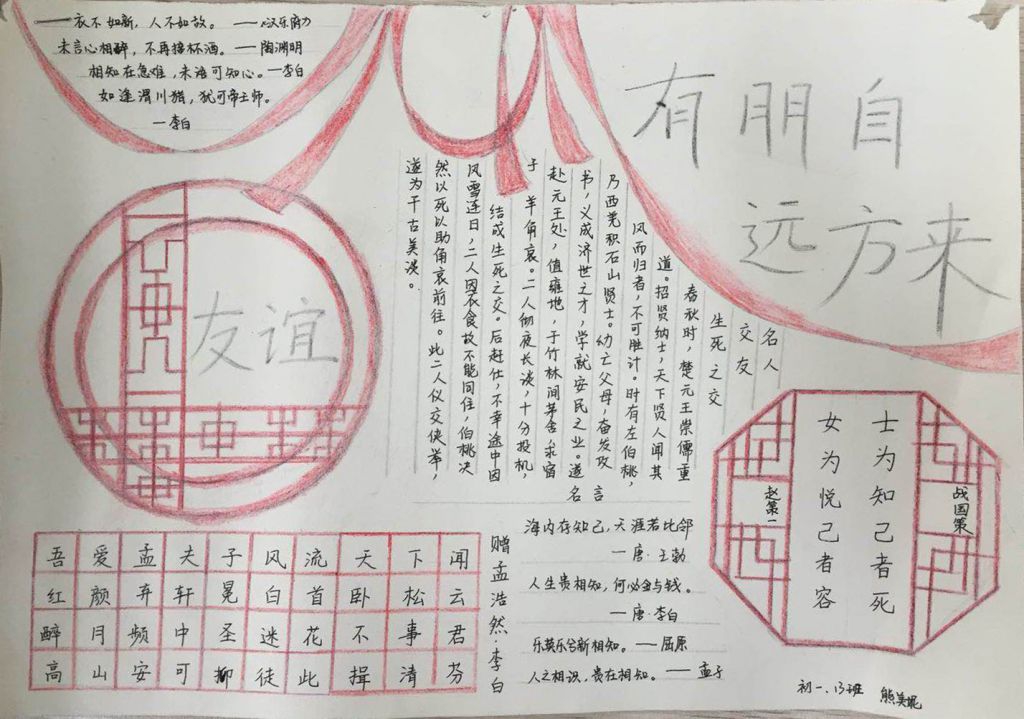 一衣不如新，人不如故。 —汉乐府
未言心相醉，不再接杯酒。—陶渊明
相知在急难，未语可知心。—李白
如逢渭川猎，犹可帝王师。
—李白
有朋自
远方来
友谊
名人
交友
生死之交
春秋时，楚元王崇儒重
道。招贤纳士，天下贤人闻其
风而归者，不可胜计。时有左伯桃，
乃西羌积石山贤士。幼亡父母，奋发攻
书，义成济世之才，学就安民之业。遂
赴元王处，值雍地，于竹林间茅舍求宿
于羊角哀。二人彻夜长谈，十分投机，
结成生死之交。后赶仕，不幸途中因
风雪连日，二人因衣食故不能同住，伯桃决
然以死以助角哀前往。此二人仪交侠举，
遂为千古美谈。
士为知己者死
女为悦己者容
战国策
赵策一
赠孟浩然·李白
吾爱孟夫子风流天下闻
红颜弃轩晃白首卧松云
醉月频中圣迷花不事君
高山安可柳徒此揖清芬
名言
海内存知己，天涯若比邻
—唐·王勃
人生贵相知，何必金与钱。
—唐·李白
乐莫乐兮新相知。—屈原
人之相识，贵在相知。—孟子
初一、13班 熊美妮